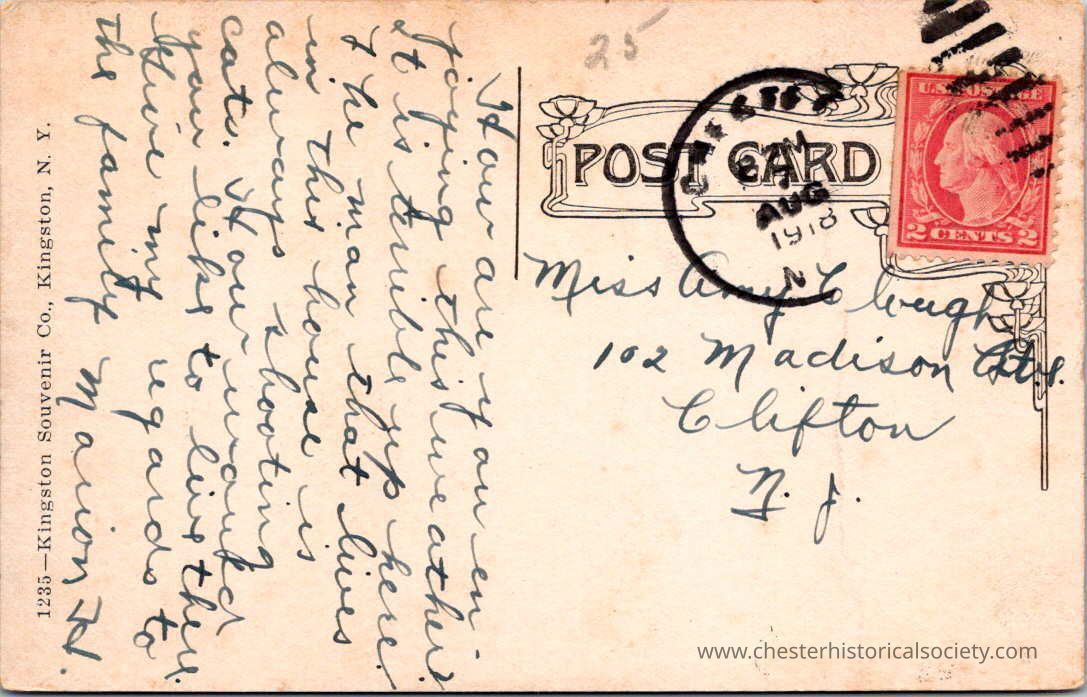 How are you en-
joying this weather
It is terrible up here.
The man that lives
in this house is
always shooting
cats. How would
you like to live there.
Give my regards to
the family Marion H.
1235—Kingston Souvenir Co., Kingston, N. Y.
25
POST CARD
CHESTER
AUG
7
1918
N
U.S. POSTAGE
2 CENTS 2
Miss Amy Clough
102 Madison Ave.
Clifton
N. J.
www.chesterhistoricalsociety.com